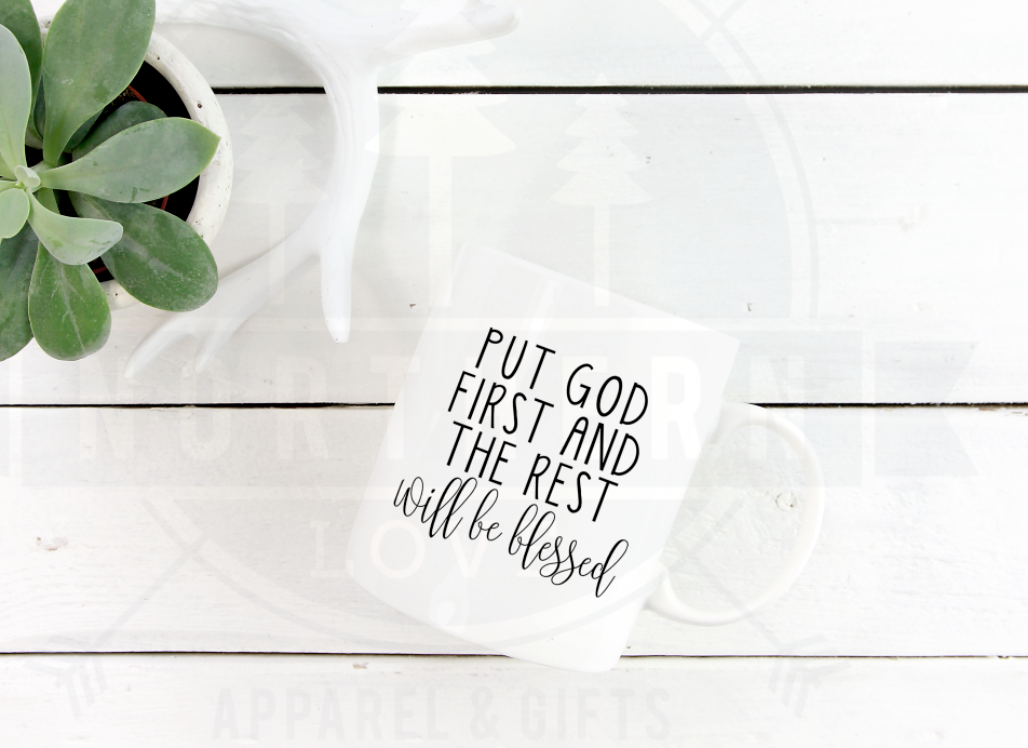 PUT GOD
FIRST AND
THE REST
will be blessed
NORTHERN
LOVE
APPAREL & GIFTS